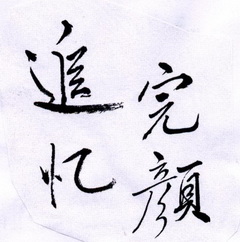 追忆
完颜